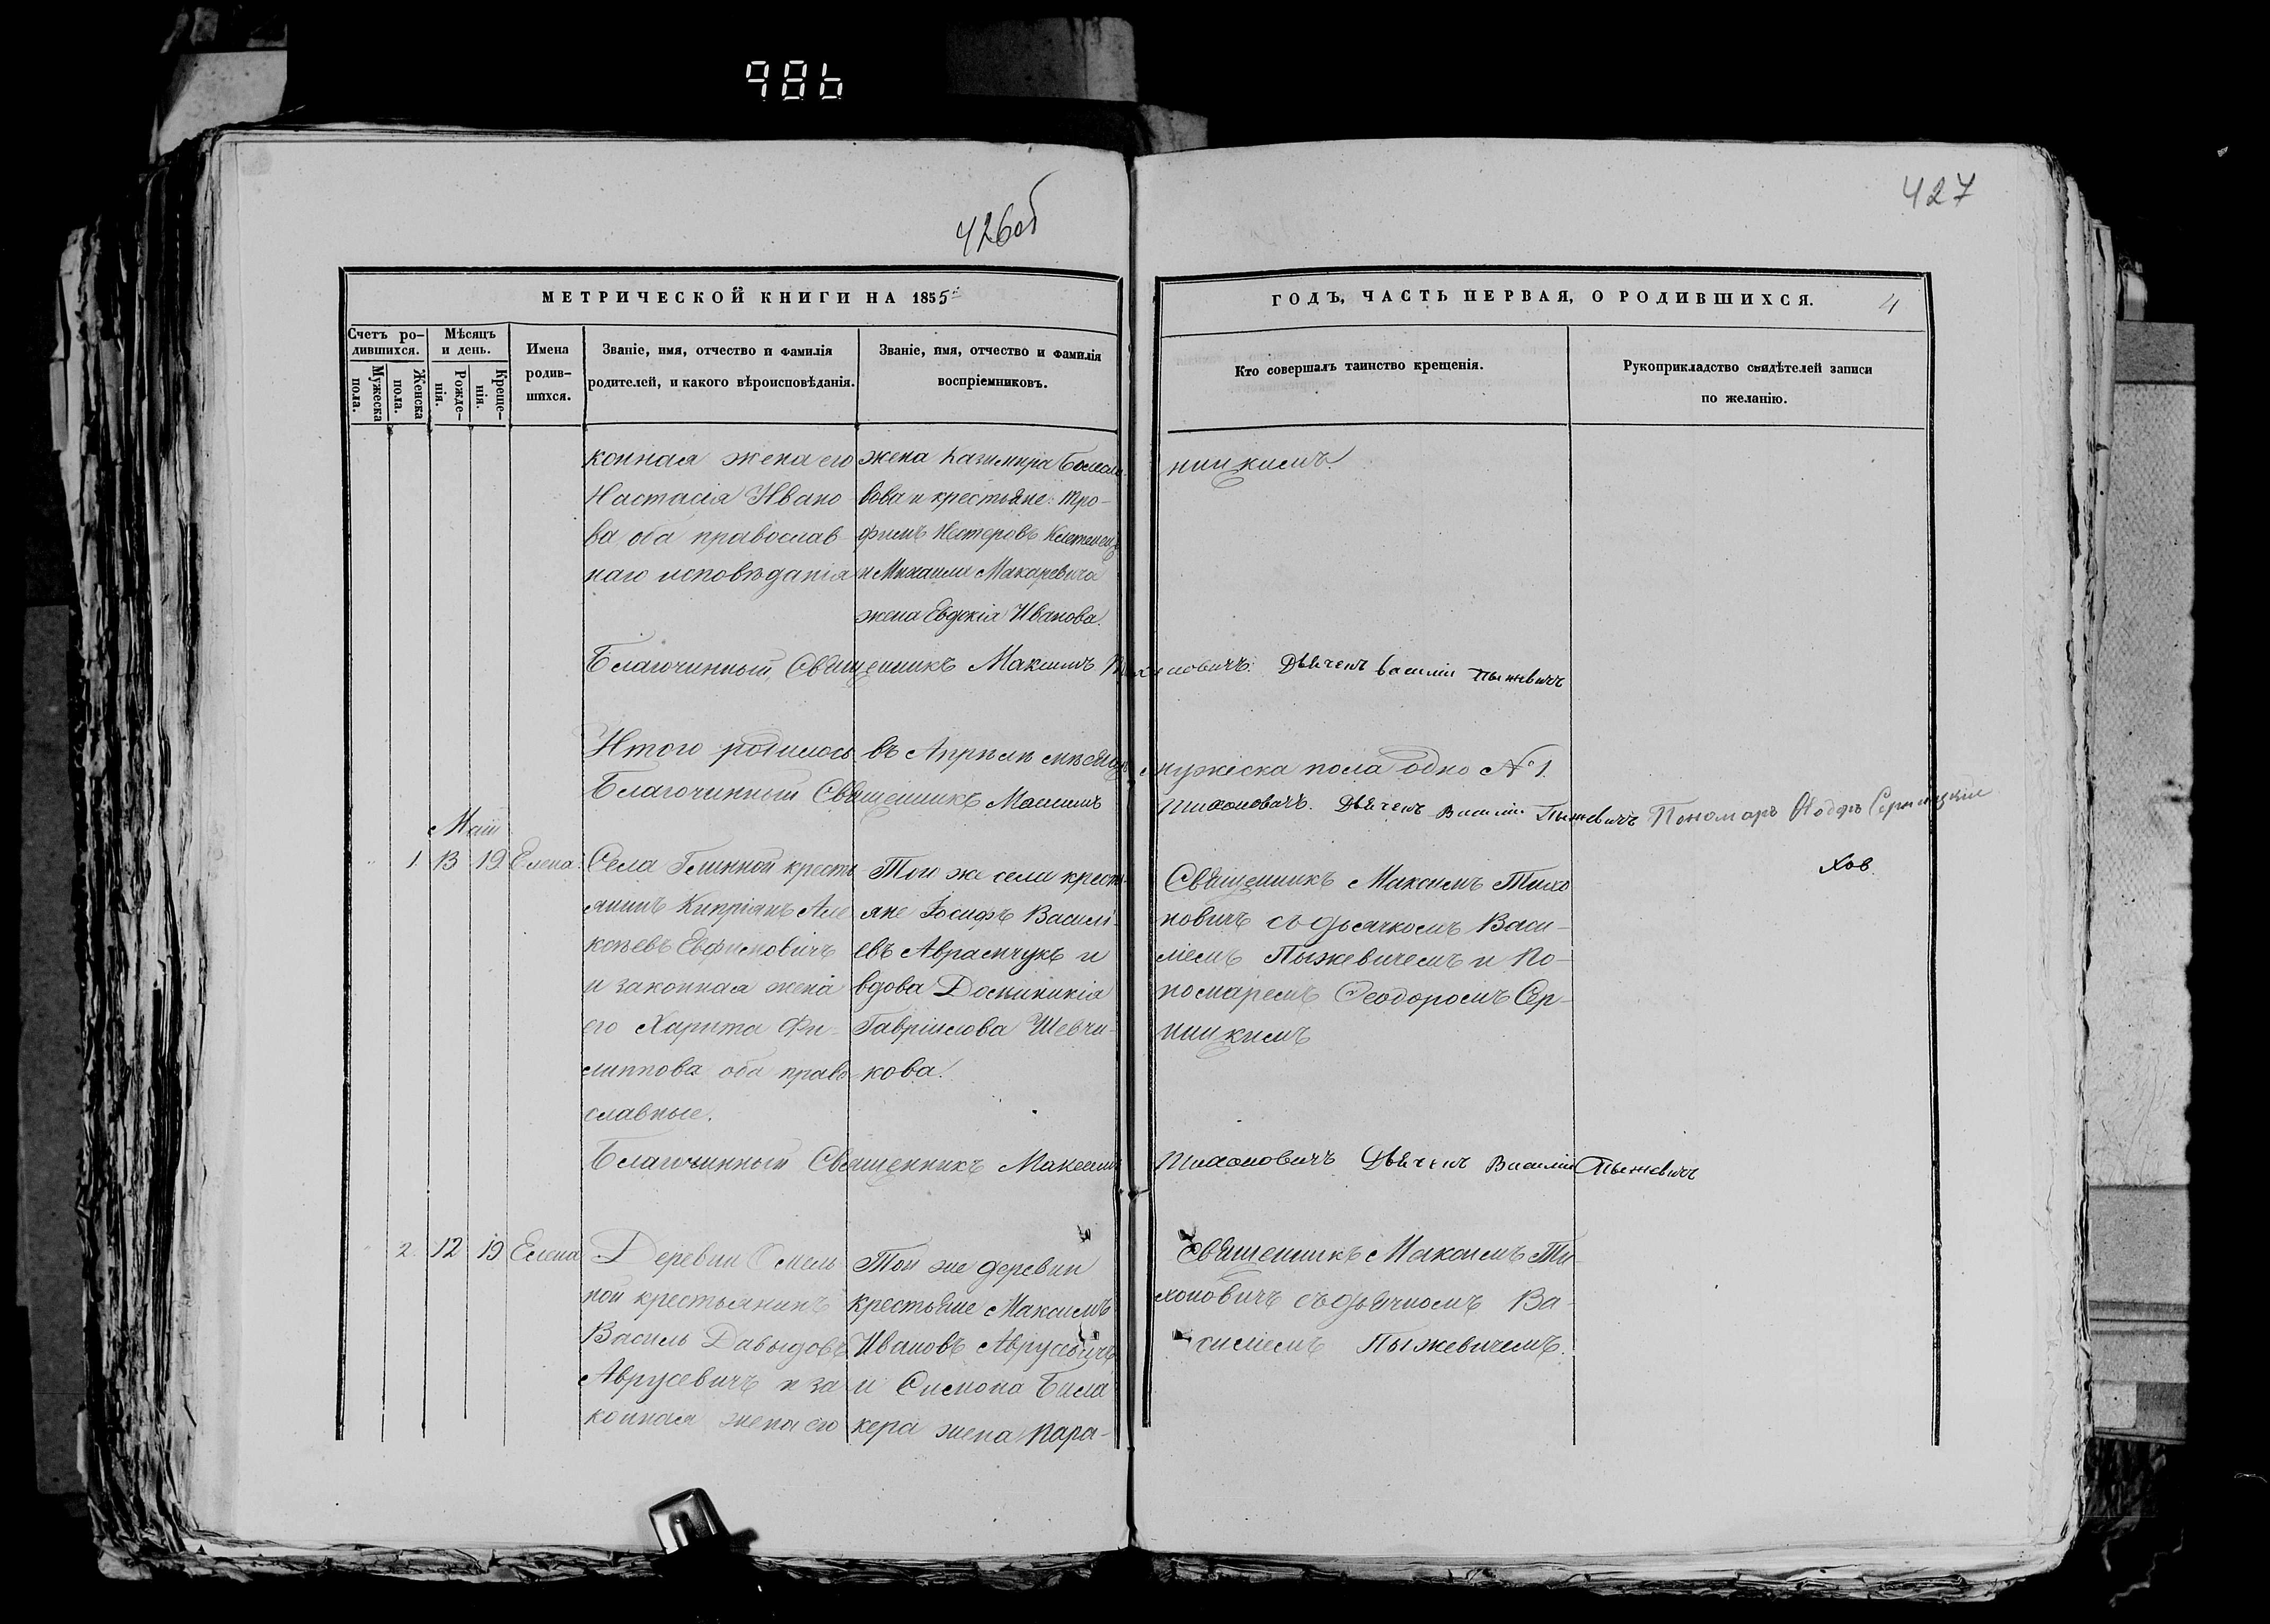 986
426об
427
МЕТРИЧЕСКОЙ КНИГИ НА 1855й
ГОДЪ, ЧАСТЬ ПЕРВАЯ, О РОДИВШИХСЯ.
4
Счетъ ро-
дившихся.
Мужеска
пола.
Женска
пола.
Мѣсяцъ
и день.
Рожде-
нія.
Креще-
нія.
Имена
родив-
шихся.
Званіе, имя, отчество и фамилія
родителей, и какого вѣроисповѣданія.
Званіе, имя, отчество и фамилія
воспріемниковъ.
Кто совершалъ таинство крещенія.
Рукоприкладство свидѣтелей записи
по желанію.
конная жена его
Настасія Ивано
ва оба православ
наго исповѣданія
жена Казимира
вова и крестьяне: Тро-
фимъ Нестеровъ
и Михаила Макаревича
жена Евдокія Иванова.
ницкимъ.
Благочинный Священникъ Максимъ Тихоновичъ. Дьячекъ Василій Пыжевичъ
Итого родилось въ Апрѣлѣ мѣсяцѣ мужеска пола одно №1.
Благочинный Священникъ Максимъ Тихоновичъ. Дьячекъ Василій Пыжевичъ Пономаръ
Май
1. 13 19 Елена.
Села Глинной кресть
янинъ Кипріянъ Але
ксѣевъ Евфимовичъ
и законная жена
его Харита Фи-
липпова оба право
славные.
Той же села кресть-
яне Іосифъ Василі-
евъ Аврамчукъ и
вдова Доминикія
Гавріилова Шевчи-
кова.
Священникъ Максимъ Тихо
новичъ съ дьячкомъ Васи-
ліемъ Пыжевичемъ и По-
номаремъ Феодоромъ Сер-
ницкимъ
Благочинный Священникъ Максимъ Тихоновичъ Дьячекъ Василій Пыжевичъ
2. 12 19 Елена
Деревни Омель
ной крестьянинъ
Василь Давыдовъ
Аврусевичъ и за
конная жена его
Той же деревни
крестьяне Максимъ
Ивановъ Аврусевичъ
и Симона Била
кера жена Пара-
Священникъ Максимъ Ти-
хоновичъ съ дьячкомъ Ва-
силіемъ Пыжевичемъ.